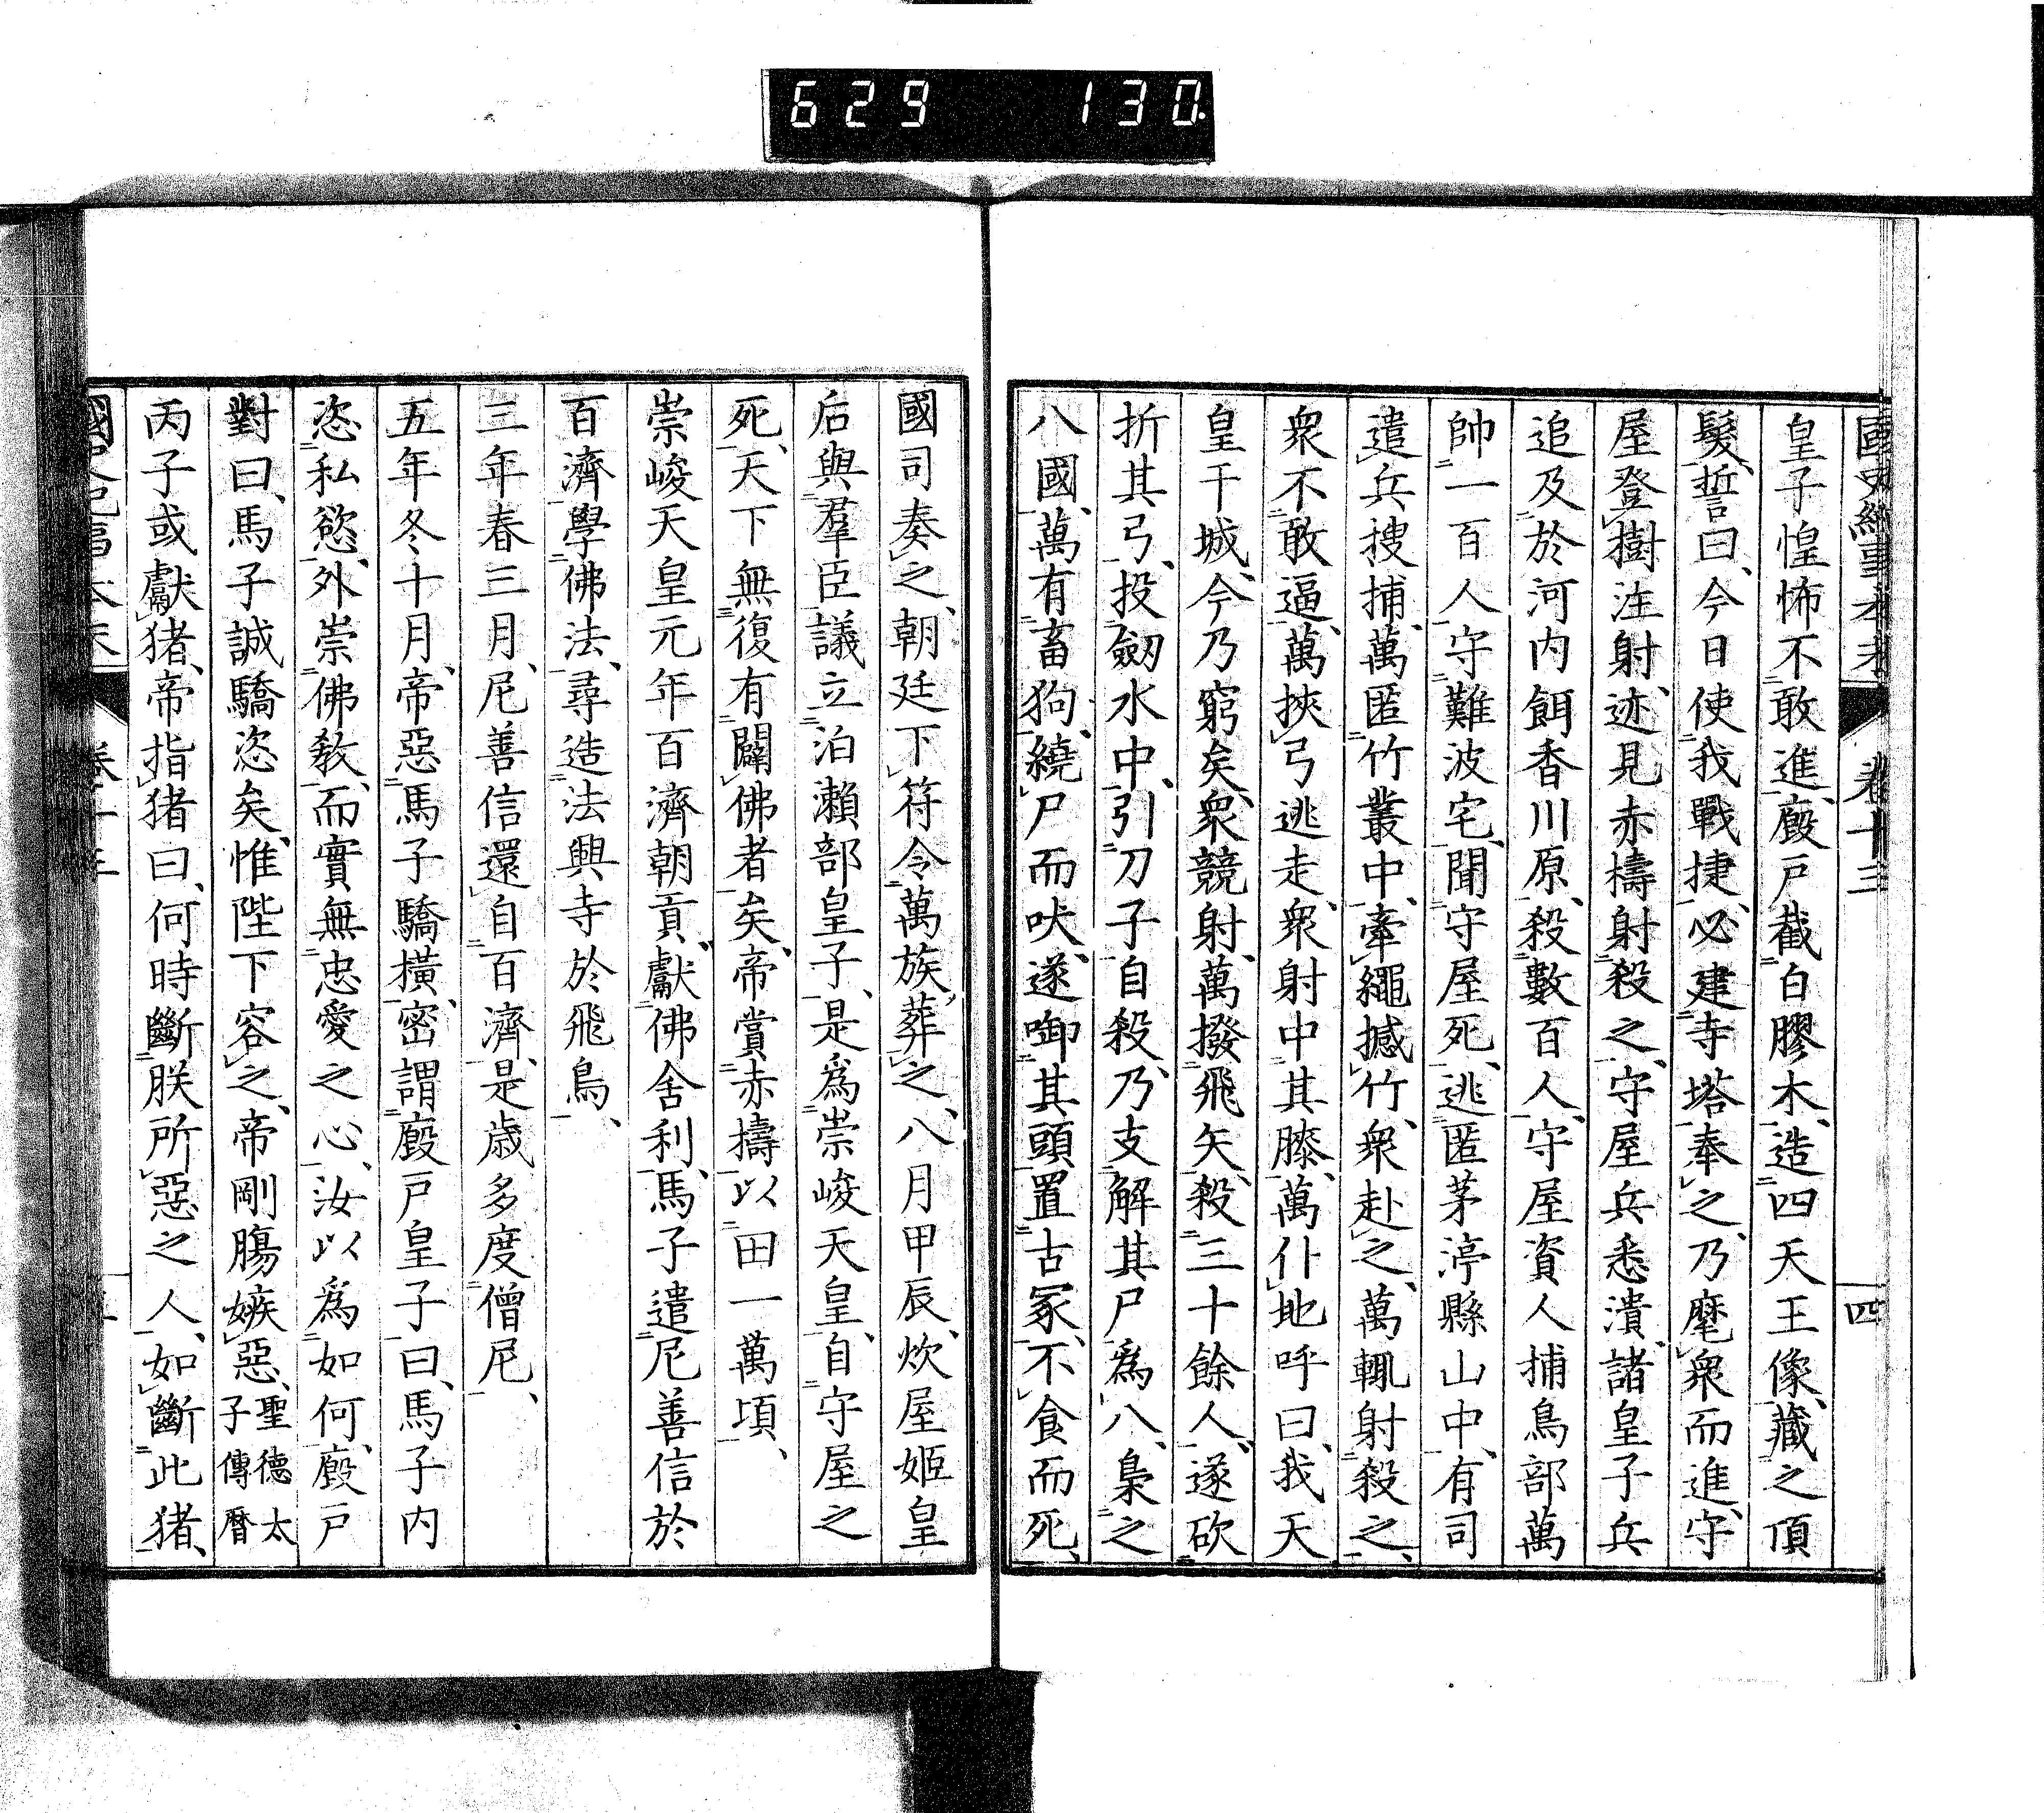 629 130.
國史紀事本末 卷十三 四
皇子惶怖不敢進、廄戸截白膠木、造四天王像、藏之頂
髮、誓曰、今日使我戰捷、必建寺塔奉之、乃麾衆而進、守
屋登樹注射、迹見赤檮射殺之、守屋兵悉潰、諸皇子兵
追及於河内餌香川原、殺數百人、守屋資人捕鳥部萬
帥一百人守難波宅、聞守屋死、逃匿茅渟縣山中、有司
遣兵搜捕、萬匿竹叢中、牽繩撼竹、衆赴之、萬輒射殺之、
衆不敢逼、萬挾弓逃走、衆射中其膝、萬仆地呼曰、我天
皇干城、今乃窮矣、衆競射、萬撥飛矢、殺三十餘人、遂砍
折其弓、投劒水中、引刀子自殺、乃支解其尸爲八、梟之
八國、萬有畜狗、繞尸而吠、遂啣其頭置古冢、不食而死、
國司奏之、朝廷下符令萬族葬之、八月甲辰、炊屋姬皇
后與羣臣議立泊瀨部皇子、是爲崇峻天皇、自守屋之
死、天下無復有闢佛者矣、帝賞赤檮以田一萬頃、
崇峻天皇元年百濟朝貢、獻佛舍利、馬子遣尼善信於
百濟學佛法、尋造法興寺於飛鳥、
三年春三月、尼善信還自百濟、是歳多度僧尼、
五年冬十月、帝惡馬子驕橫、密謂廄戸皇子曰、馬子内
恣私慾、外崇佛敎、而實無忠愛之心、汝以爲如何、廄戸
對曰、馬子誠驕恣矣、惟陛下容之、帝剛腸嫉惡、聖德太子傳曆
丙子或獻猪、帝指猪曰、何時斷朕所惡之人、如斷此猪、
本末 卷十三